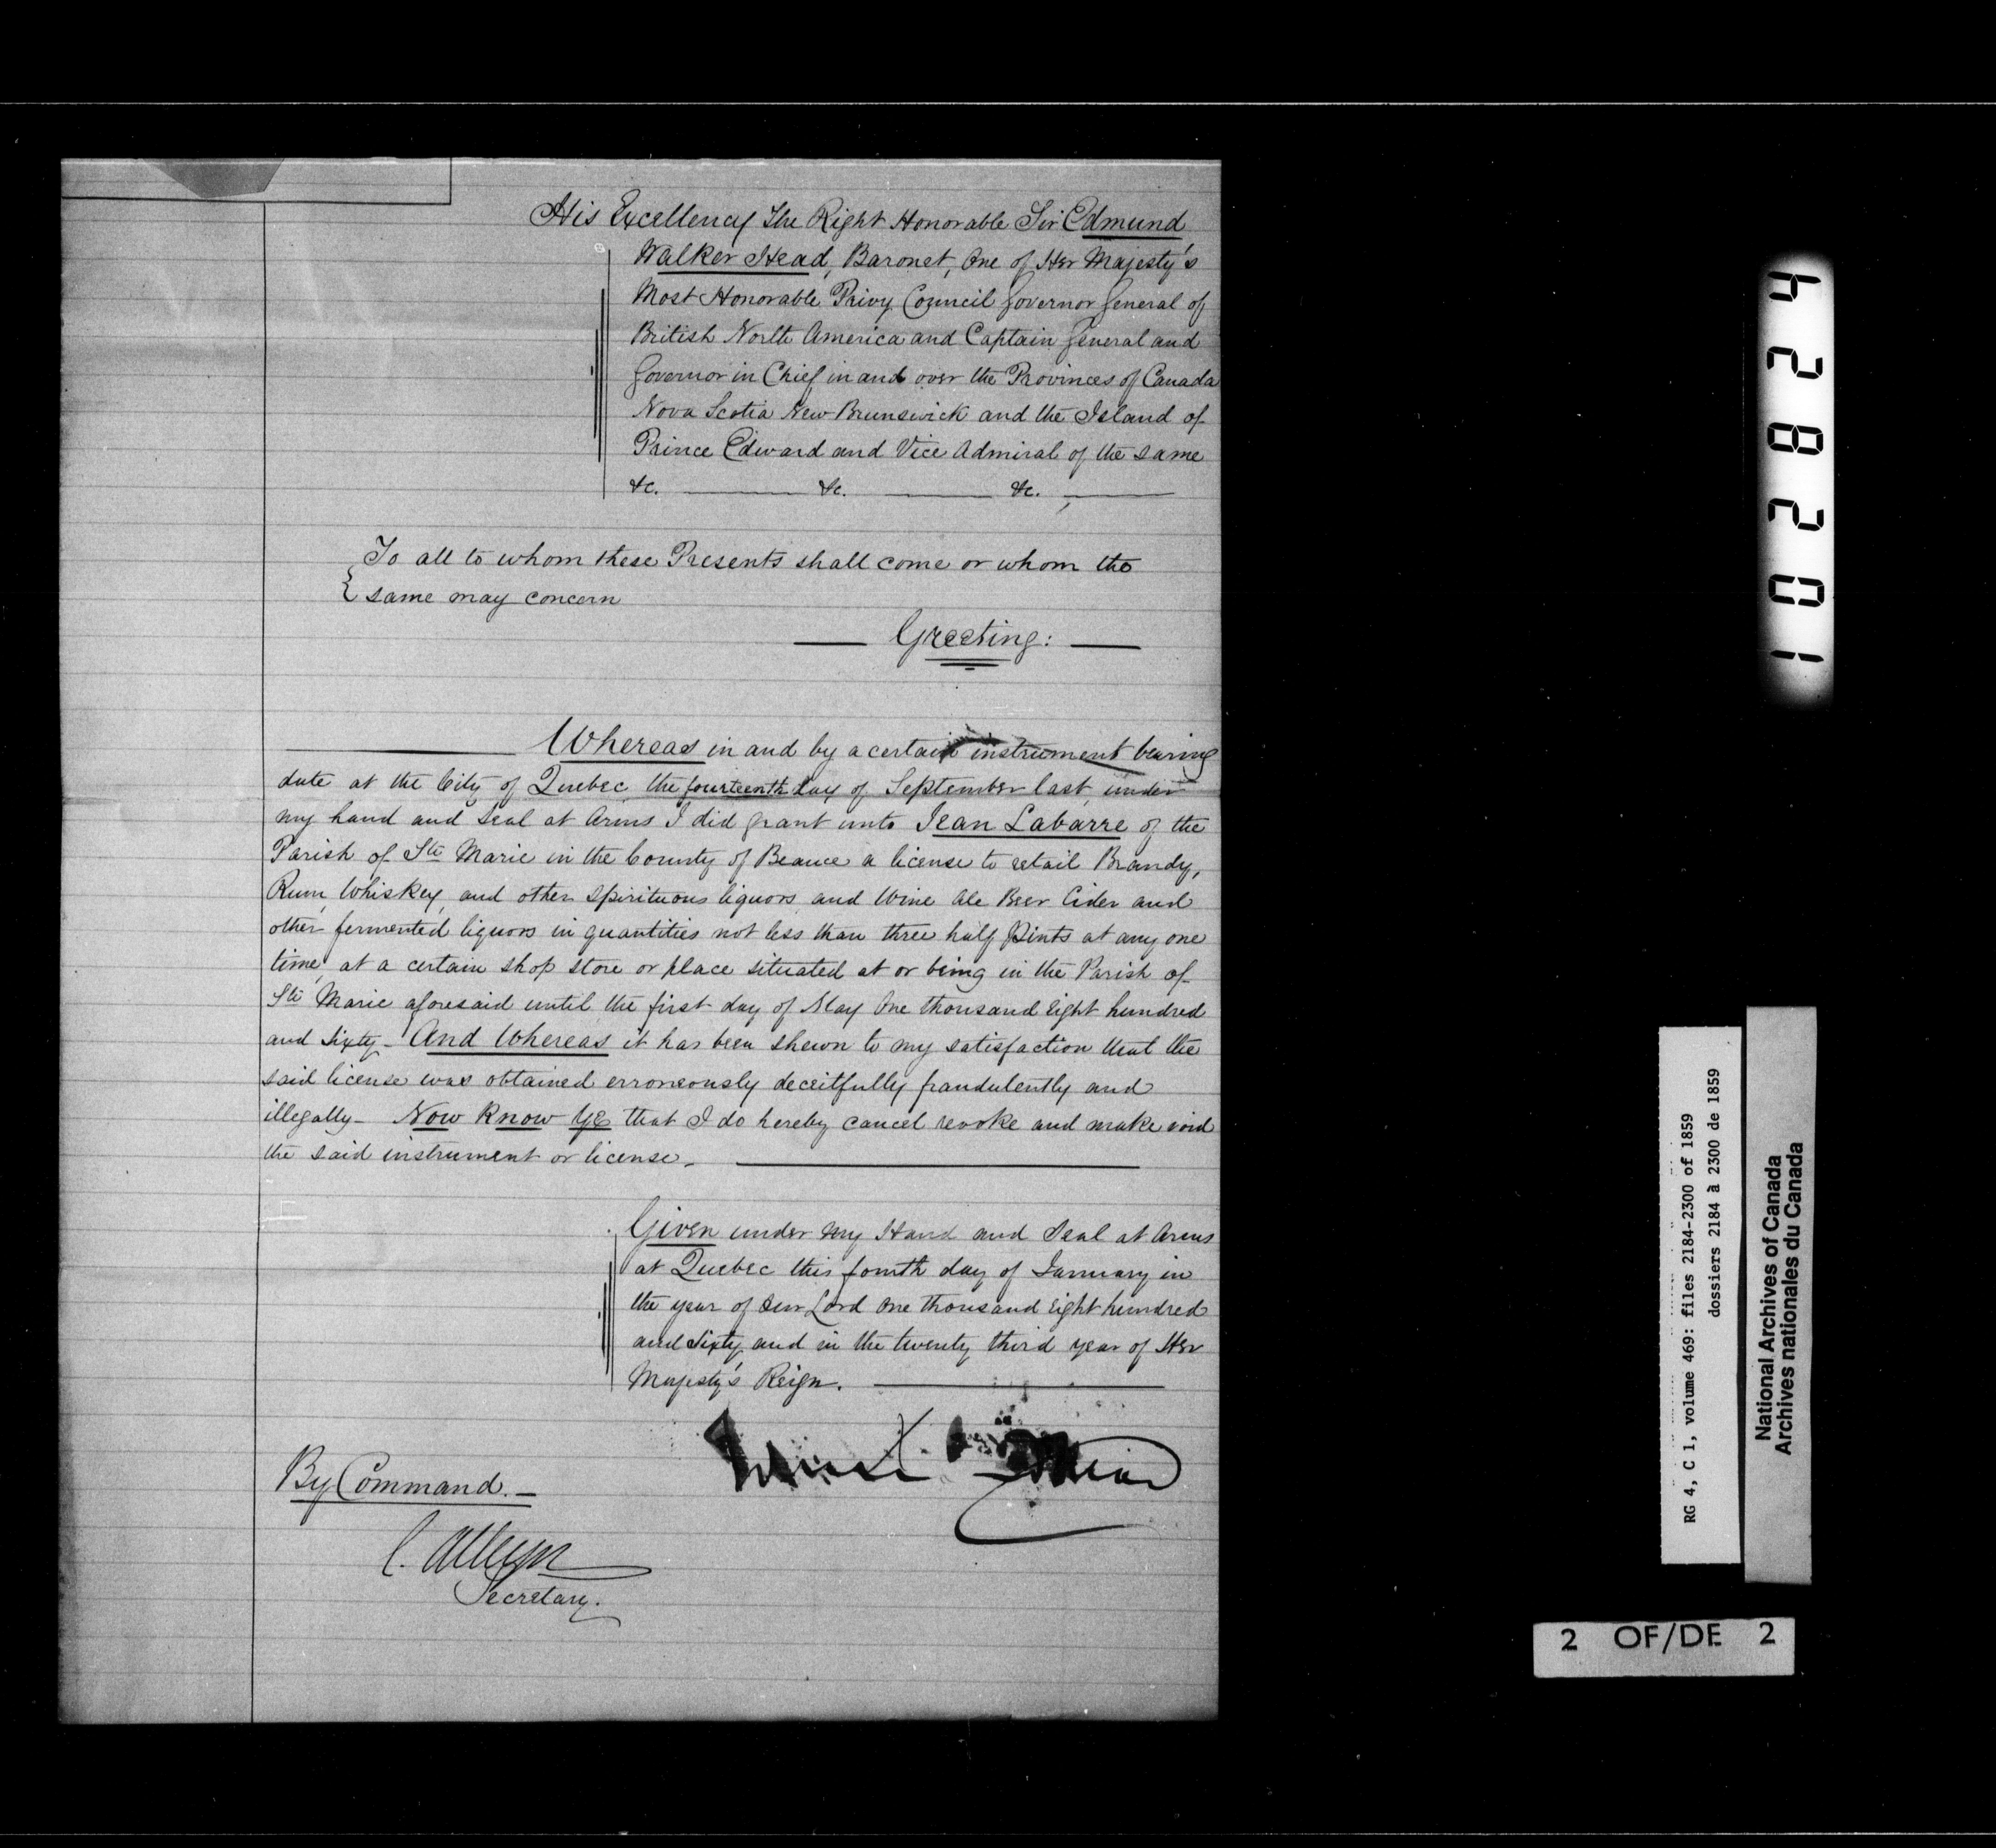 His Excellency The Right Honorable Sir Edmund
Walker Head, Baronet, One of Her Majesty's
Most Honorable Privy Council Governor General of
British North America and Captain General and
Governor in Chief in and over the Provinces of Canada
Nova Scotia New Brunswick and the Island of
Prince Edward and Vice Admiral of the same
&c. &c. &c.
To all to whom these Presents shall come or whom the
same may concern
Greeting:
Whereas in and by a certain instrument bearing
date at the City of Quebec, the fourteenth day of September last, under
my hand and Seal at Arms I did grant unto Jean Labarre of the
Parish of Ste Marie in the County of Beauce a license to retail Brandy,
Rum, Whiskey, and other spirituous liquors and Wine Ale Beer Cider and
other fermented liquors in quantities not less than three half pints at any one
time, at a certain shop store or place situated at or being in the Parish of
Ste Marie aforesaid until the first day of May One thousand eight hundred
and Sixty - And Whereas it has been shewn to my satisfaction that the
said license was obtained erroneously deceitfully fraudulently and
illegally - Now Know Ye that I do hereby cancel revoke and make void
the said instrument or license.
Given under my Hand and Seal at Arms
at Quebec this fourth day of January in
the year of Our Lord One thousand eight hundred
and Sixty and in the twenty third year of Her
Majesty's Reign.
By Command. -
C. Alleyn
Secretary.
428201
RG 4, C 1, volume 469: files 2184-2300 of 1859
dossiers 2184 à 2300 de 1859
National Archives of Canada
Archives nationales du Canada
2 OF/DE 2